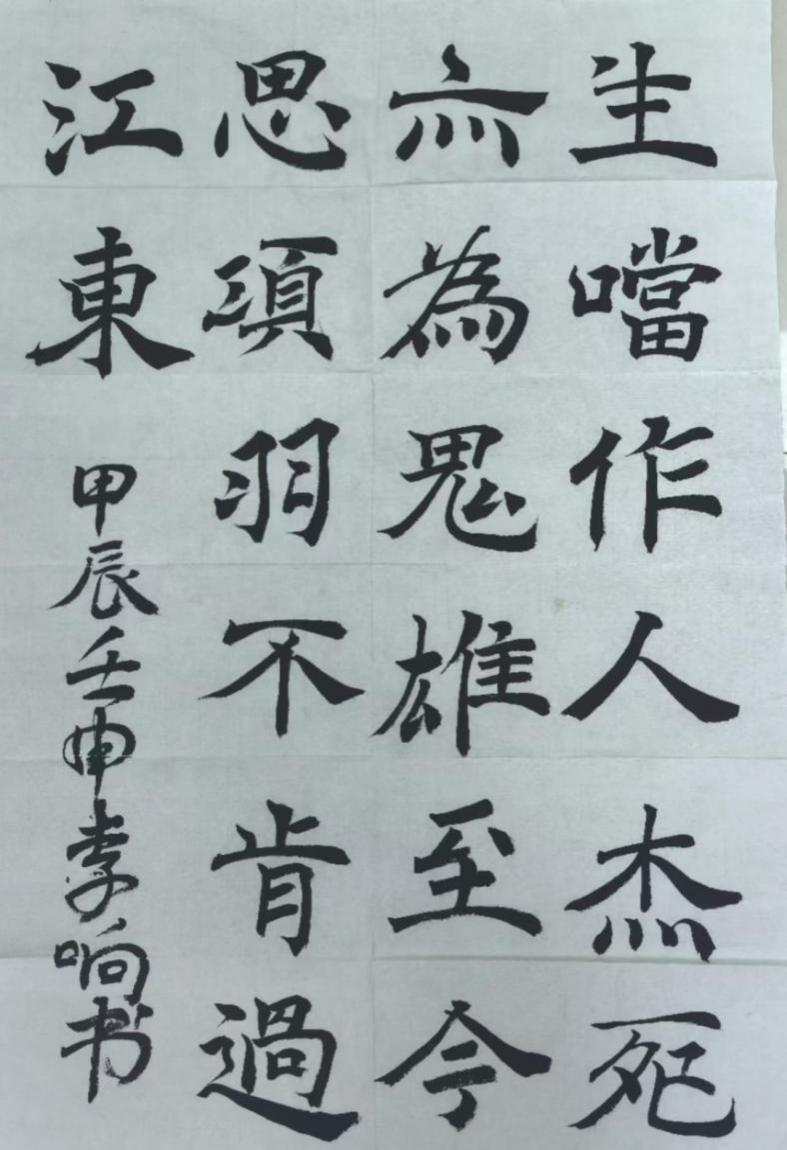 生噹作人杰死
亦為鬼雄至今
思項羽不肯過
江東
甲辰壬申李响书